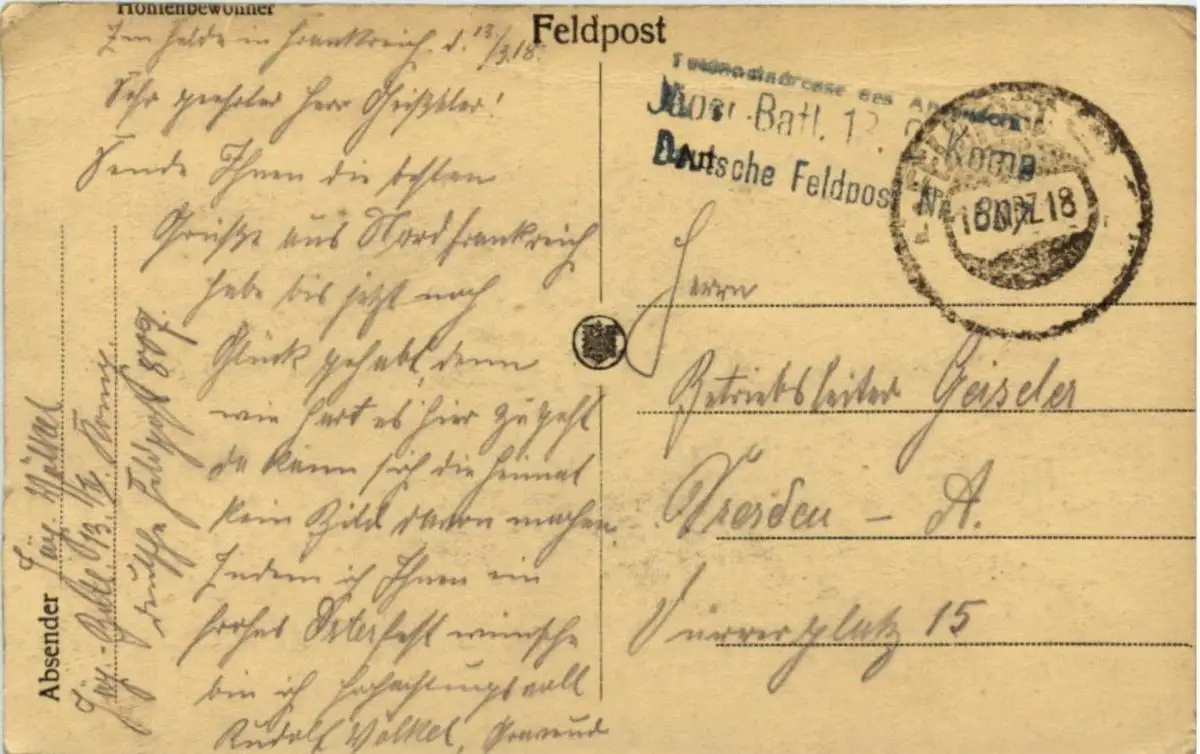 Höhlenbewohner
Feldpost
Im Felde in Frankreich. d. 13./3.18.
Sehr geehrter Herr
Sende Ihnen die besten
Grüße aus Nordfrankreich
habe bis jetzt noch
Glück gehabt, denn
wie hart es hier zugeht
da kann sich die Heimat
kein Bild davon machen.
Indem ich Ihnen ein
frohes Osterfest wünsche
bin ich hochachtungsvoll
Rudolf Völkel,
Absender
Jäg. Völkel
Jäg.-Batl. 13. Komp.
deutsche Feldpost 809.
Jäger-Batl. 13.
Deutsche Feldpost Nr.
18
Herrn
Betriebsleiter Geiseler
Dresden - A.
Dürerplatz 15